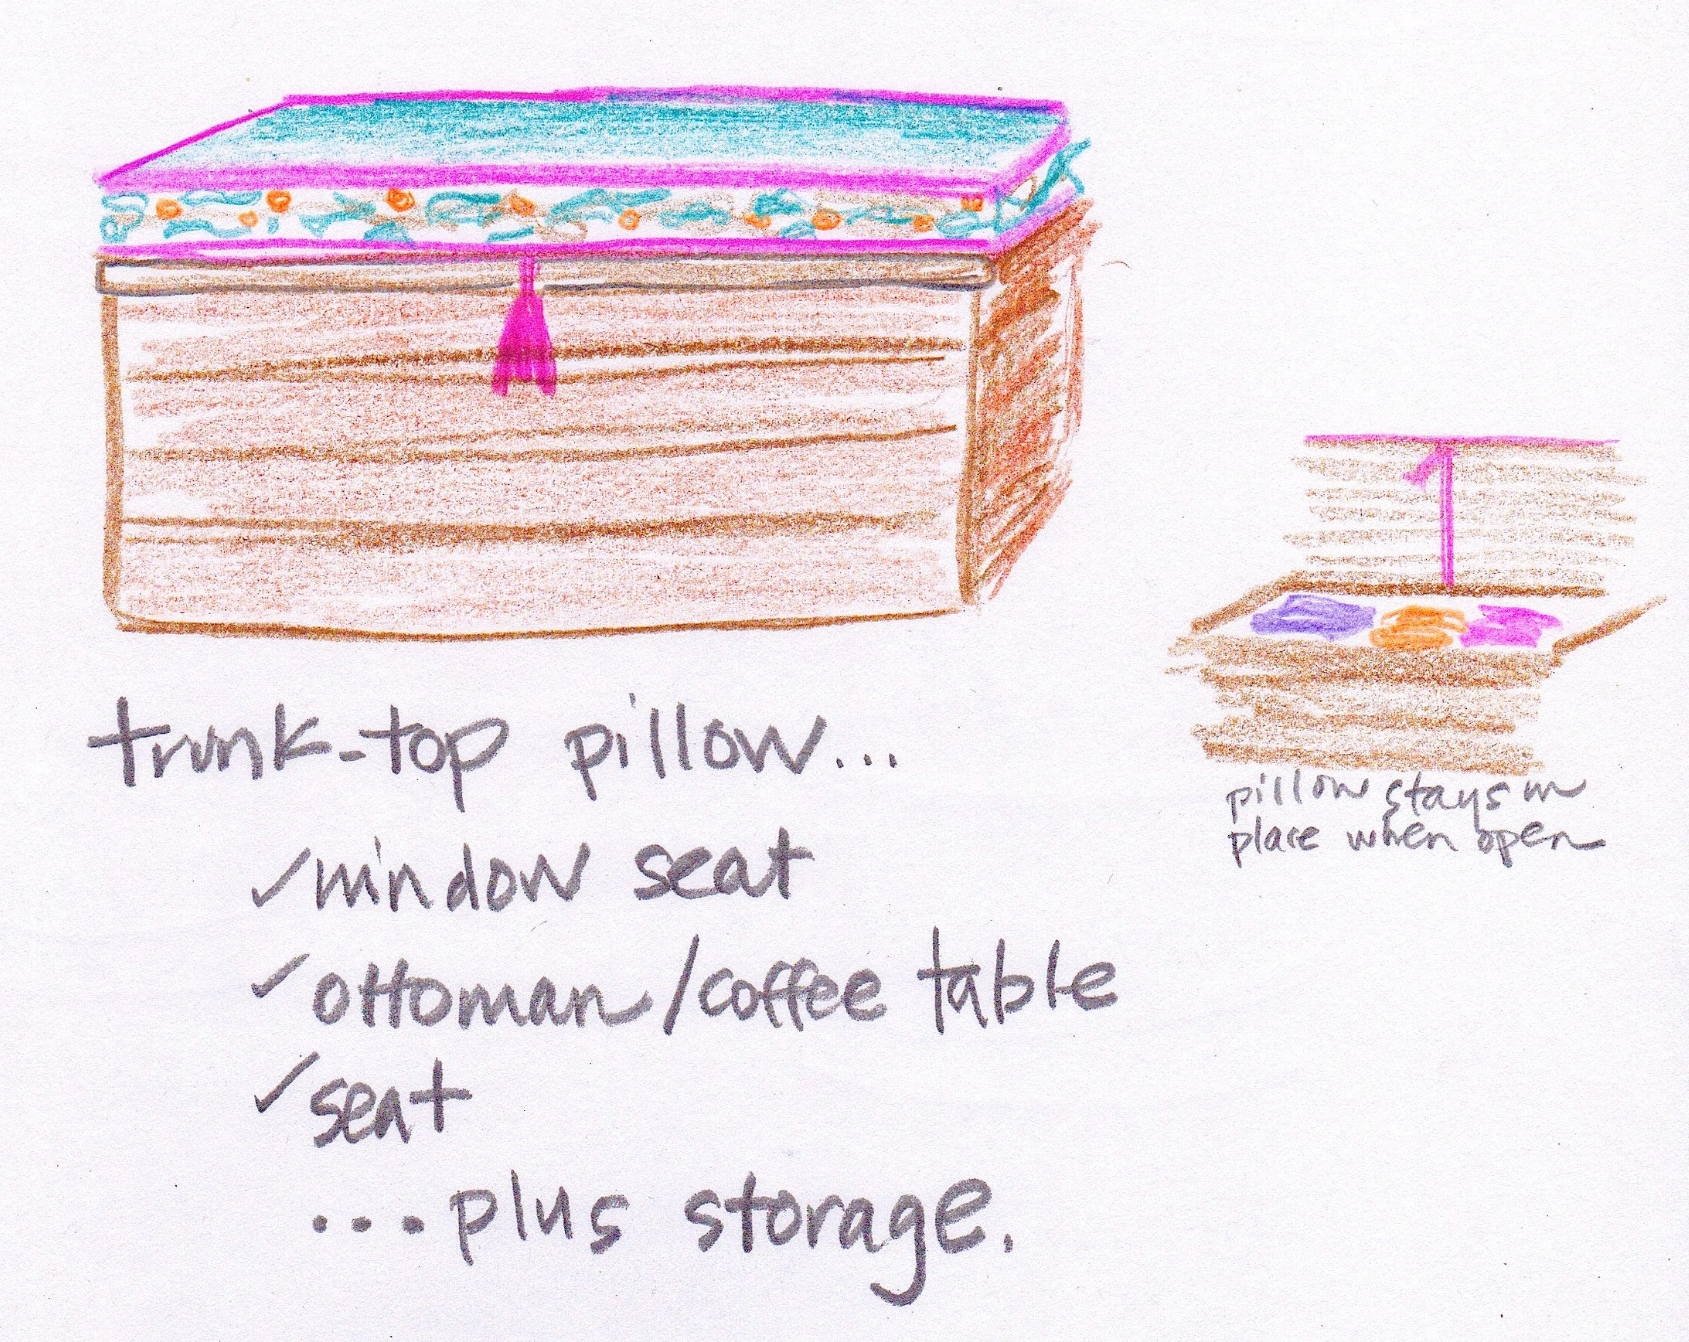 trunk-top pillow...
✓window seat
✓ottoman/coffee table
✓seat
...plus storage.
pillow stays in
place when open